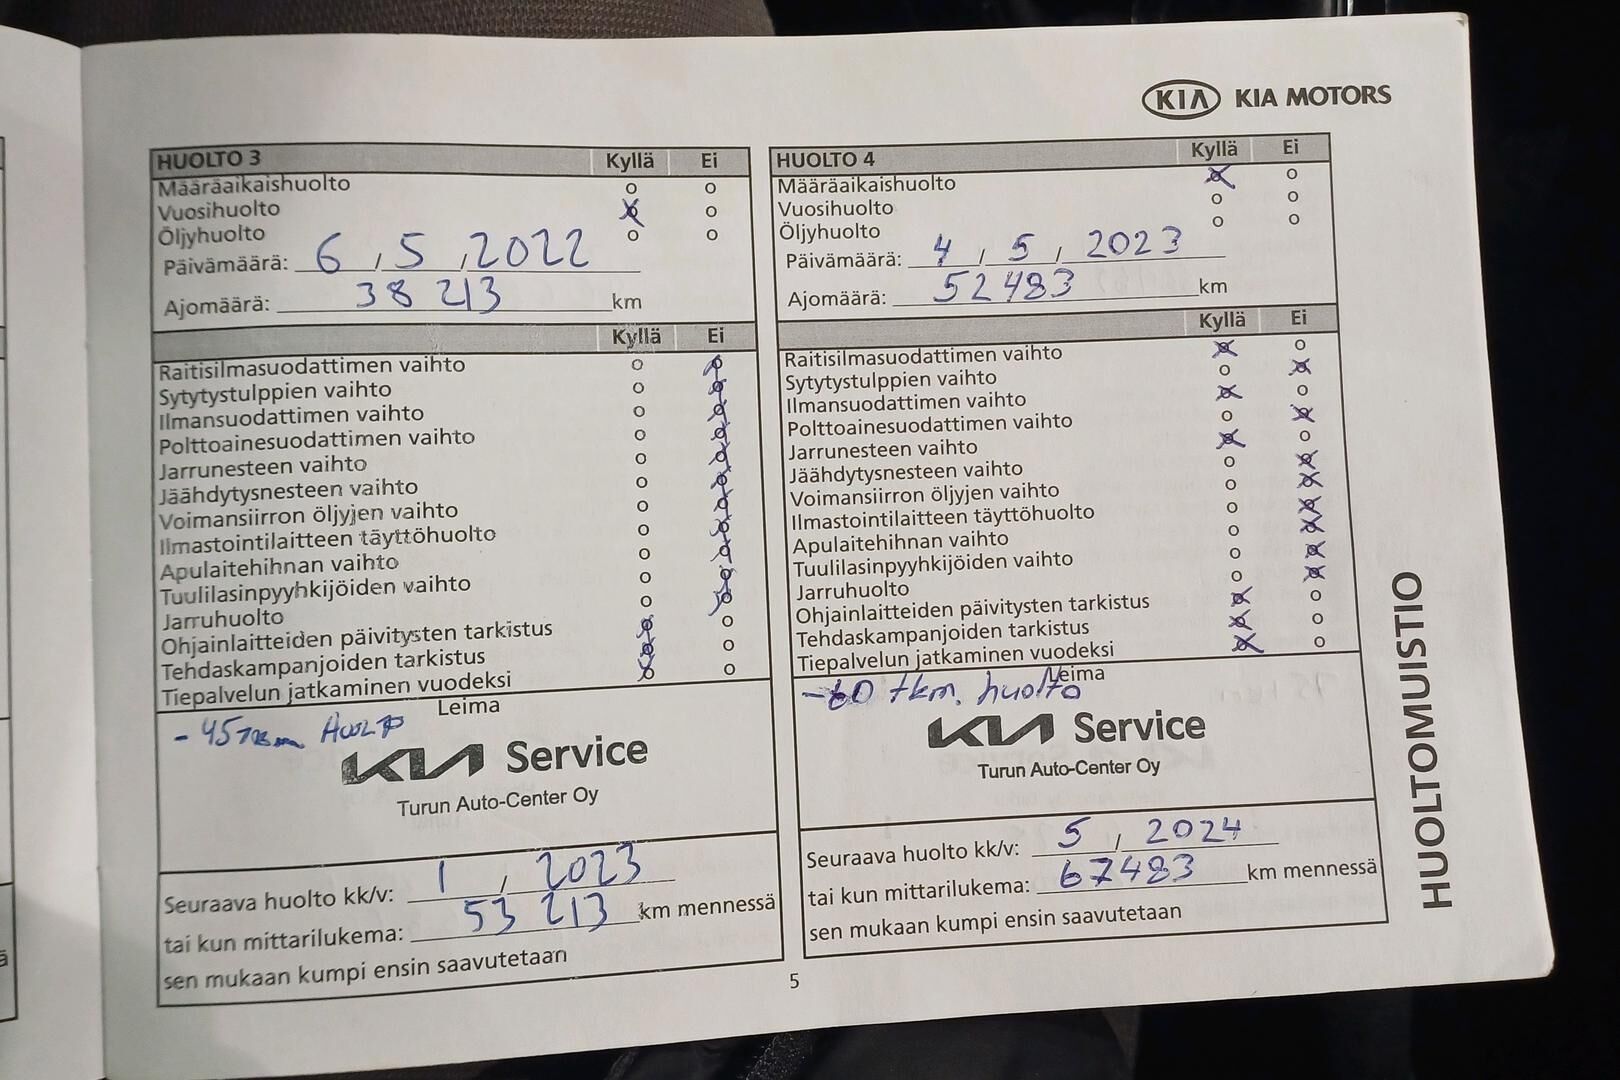 KIA KIA MOTORS
HUOLTO 3 Kyllä Ei
Määräaikaishuolto o o
Vuosihuolto x o
Öljyhuolto o o
Päivämäärä: 6 , 5 , 2022
Ajomäärä: 38 213 km
Kyllä Ei
Raitisilmasuodattimen vaihto o x
Sytytystulppien vaihto o x
Ilmansuodattimen vaihto o x
Polttoainesuodattimen vaihto o x
Jarrunesteen vaihto o x
Jäähdytysnesteen vaihto o x
Voimansiirron öljyjen vaihto o x
Ilmastointilaitteen täyttöhuolto o x
Apulaitehihnan vaihto o x
Tuulilasinpyyhkijöiden vaihto o x
Jarruhuolto o x
Ohjainlaitteiden päivitysten tarkistus x o
Tehdaskampanjoiden tarkistus x o
Tiepalvelun jatkaminen vuodeksi x o
Leima
- 45 HUOLTO
KIA Service
Turun Auto-Center Oy
Seuraava huolto kk/v: 1 , 2023
tai kun mittarilukema: 53 213 km mennessä
sen mukaan kumpi ensin saavutetaan
HUOLTO 4 Kyllä Ei
Määräaikaishuolto x o
Vuosihuolto o o
Öljyhuolto o o
Päivämäärä: 4 , 5 , 2023
Ajomäärä: 52483 km
Kyllä Ei
Raitisilmasuodattimen vaihto x o
Sytytystulppien vaihto o x
Ilmansuodattimen vaihto x o
Polttoainesuodattimen vaihto o x
Jarrunesteen vaihto x o
Jäähdytysnesteen vaihto o x
Voimansiirron öljyjen vaihto o x
Ilmastointilaitteen täyttöhuolto o x
Apulaitehihnan vaihto o x
Tuulilasinpyyhkijöiden vaihto o x
Jarruhuolto o x
Ohjainlaitteiden päivitysten tarkistus x o
Tehdaskampanjoiden tarkistus x o
Tiepalvelun jatkaminen vuodeksi x o
Leima
-60 tkm. huolto
KIA Service
Turun Auto-Center Oy
Seuraava huolto kk/v: 5 , 2024
tai kun mittarilukema: 67483 km mennessä
sen mukaan kumpi ensin saavutetaan
HUOLTOMUISTIO
5